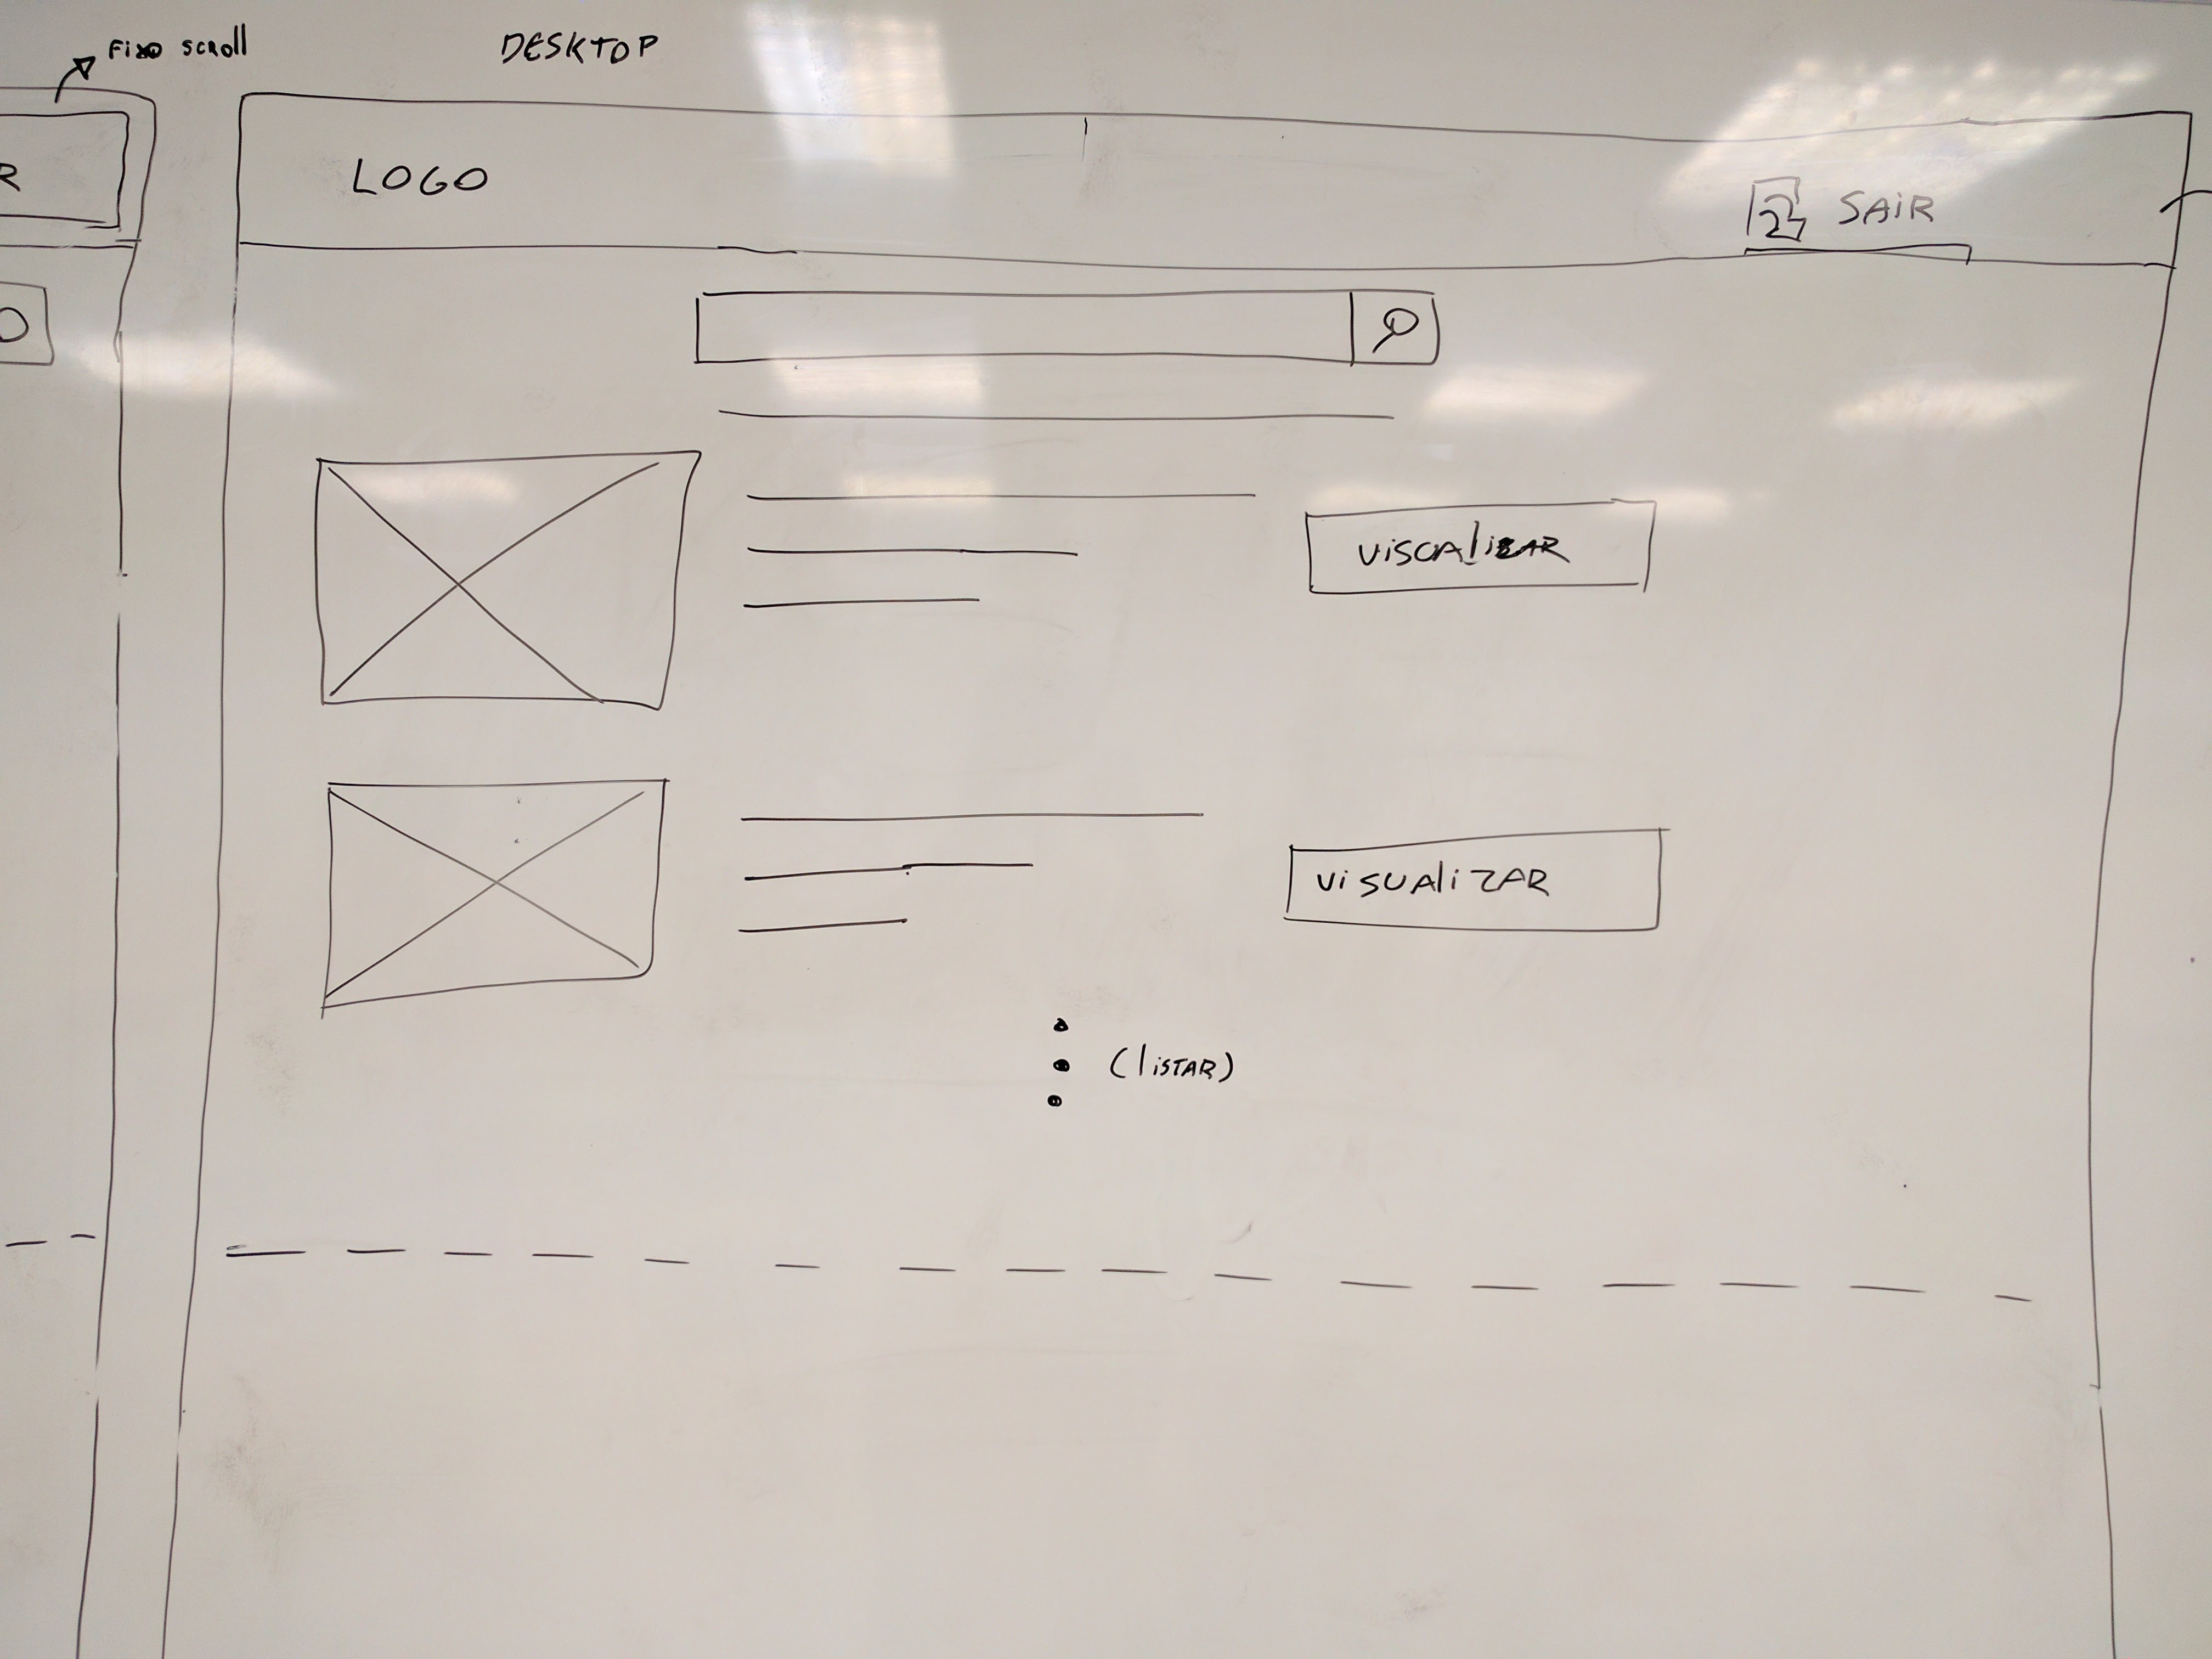 Fixo scroll
DESKTOP
R
LOGO
SAIR
O
VISUALIZAR
VISUALIZAR
(listar)